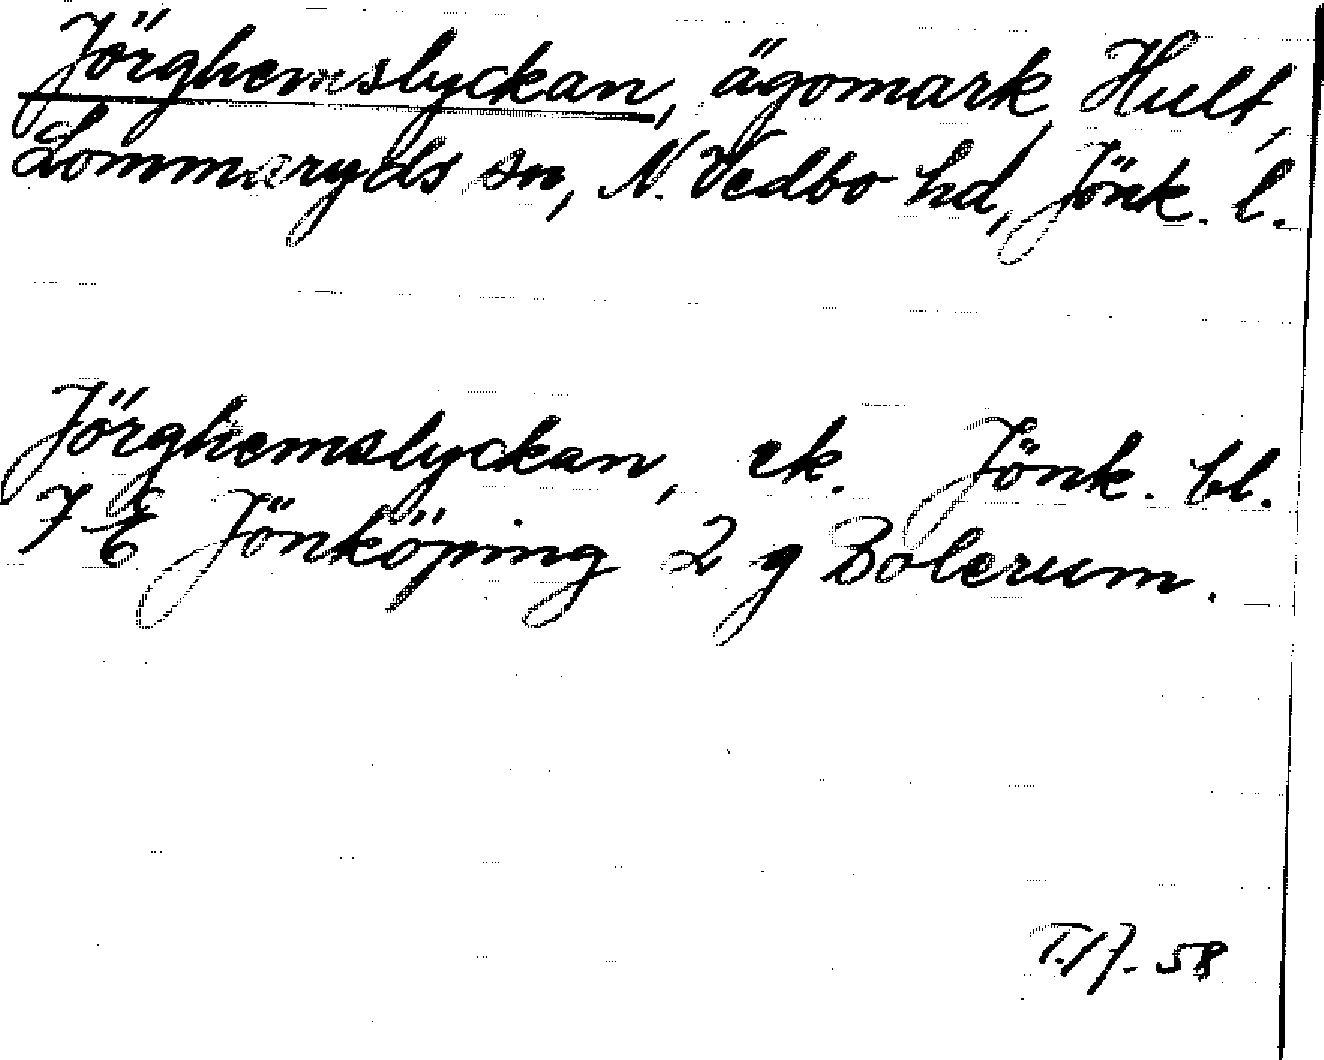 Jörghemslyckan, ägomark, Hult,
Lommaryds sn, N. Vedbo hd, Jönk. l.
Jörghemslyckan, ek. Jönk. bl.
7 E Jönköping 2 g Bolerum.
58